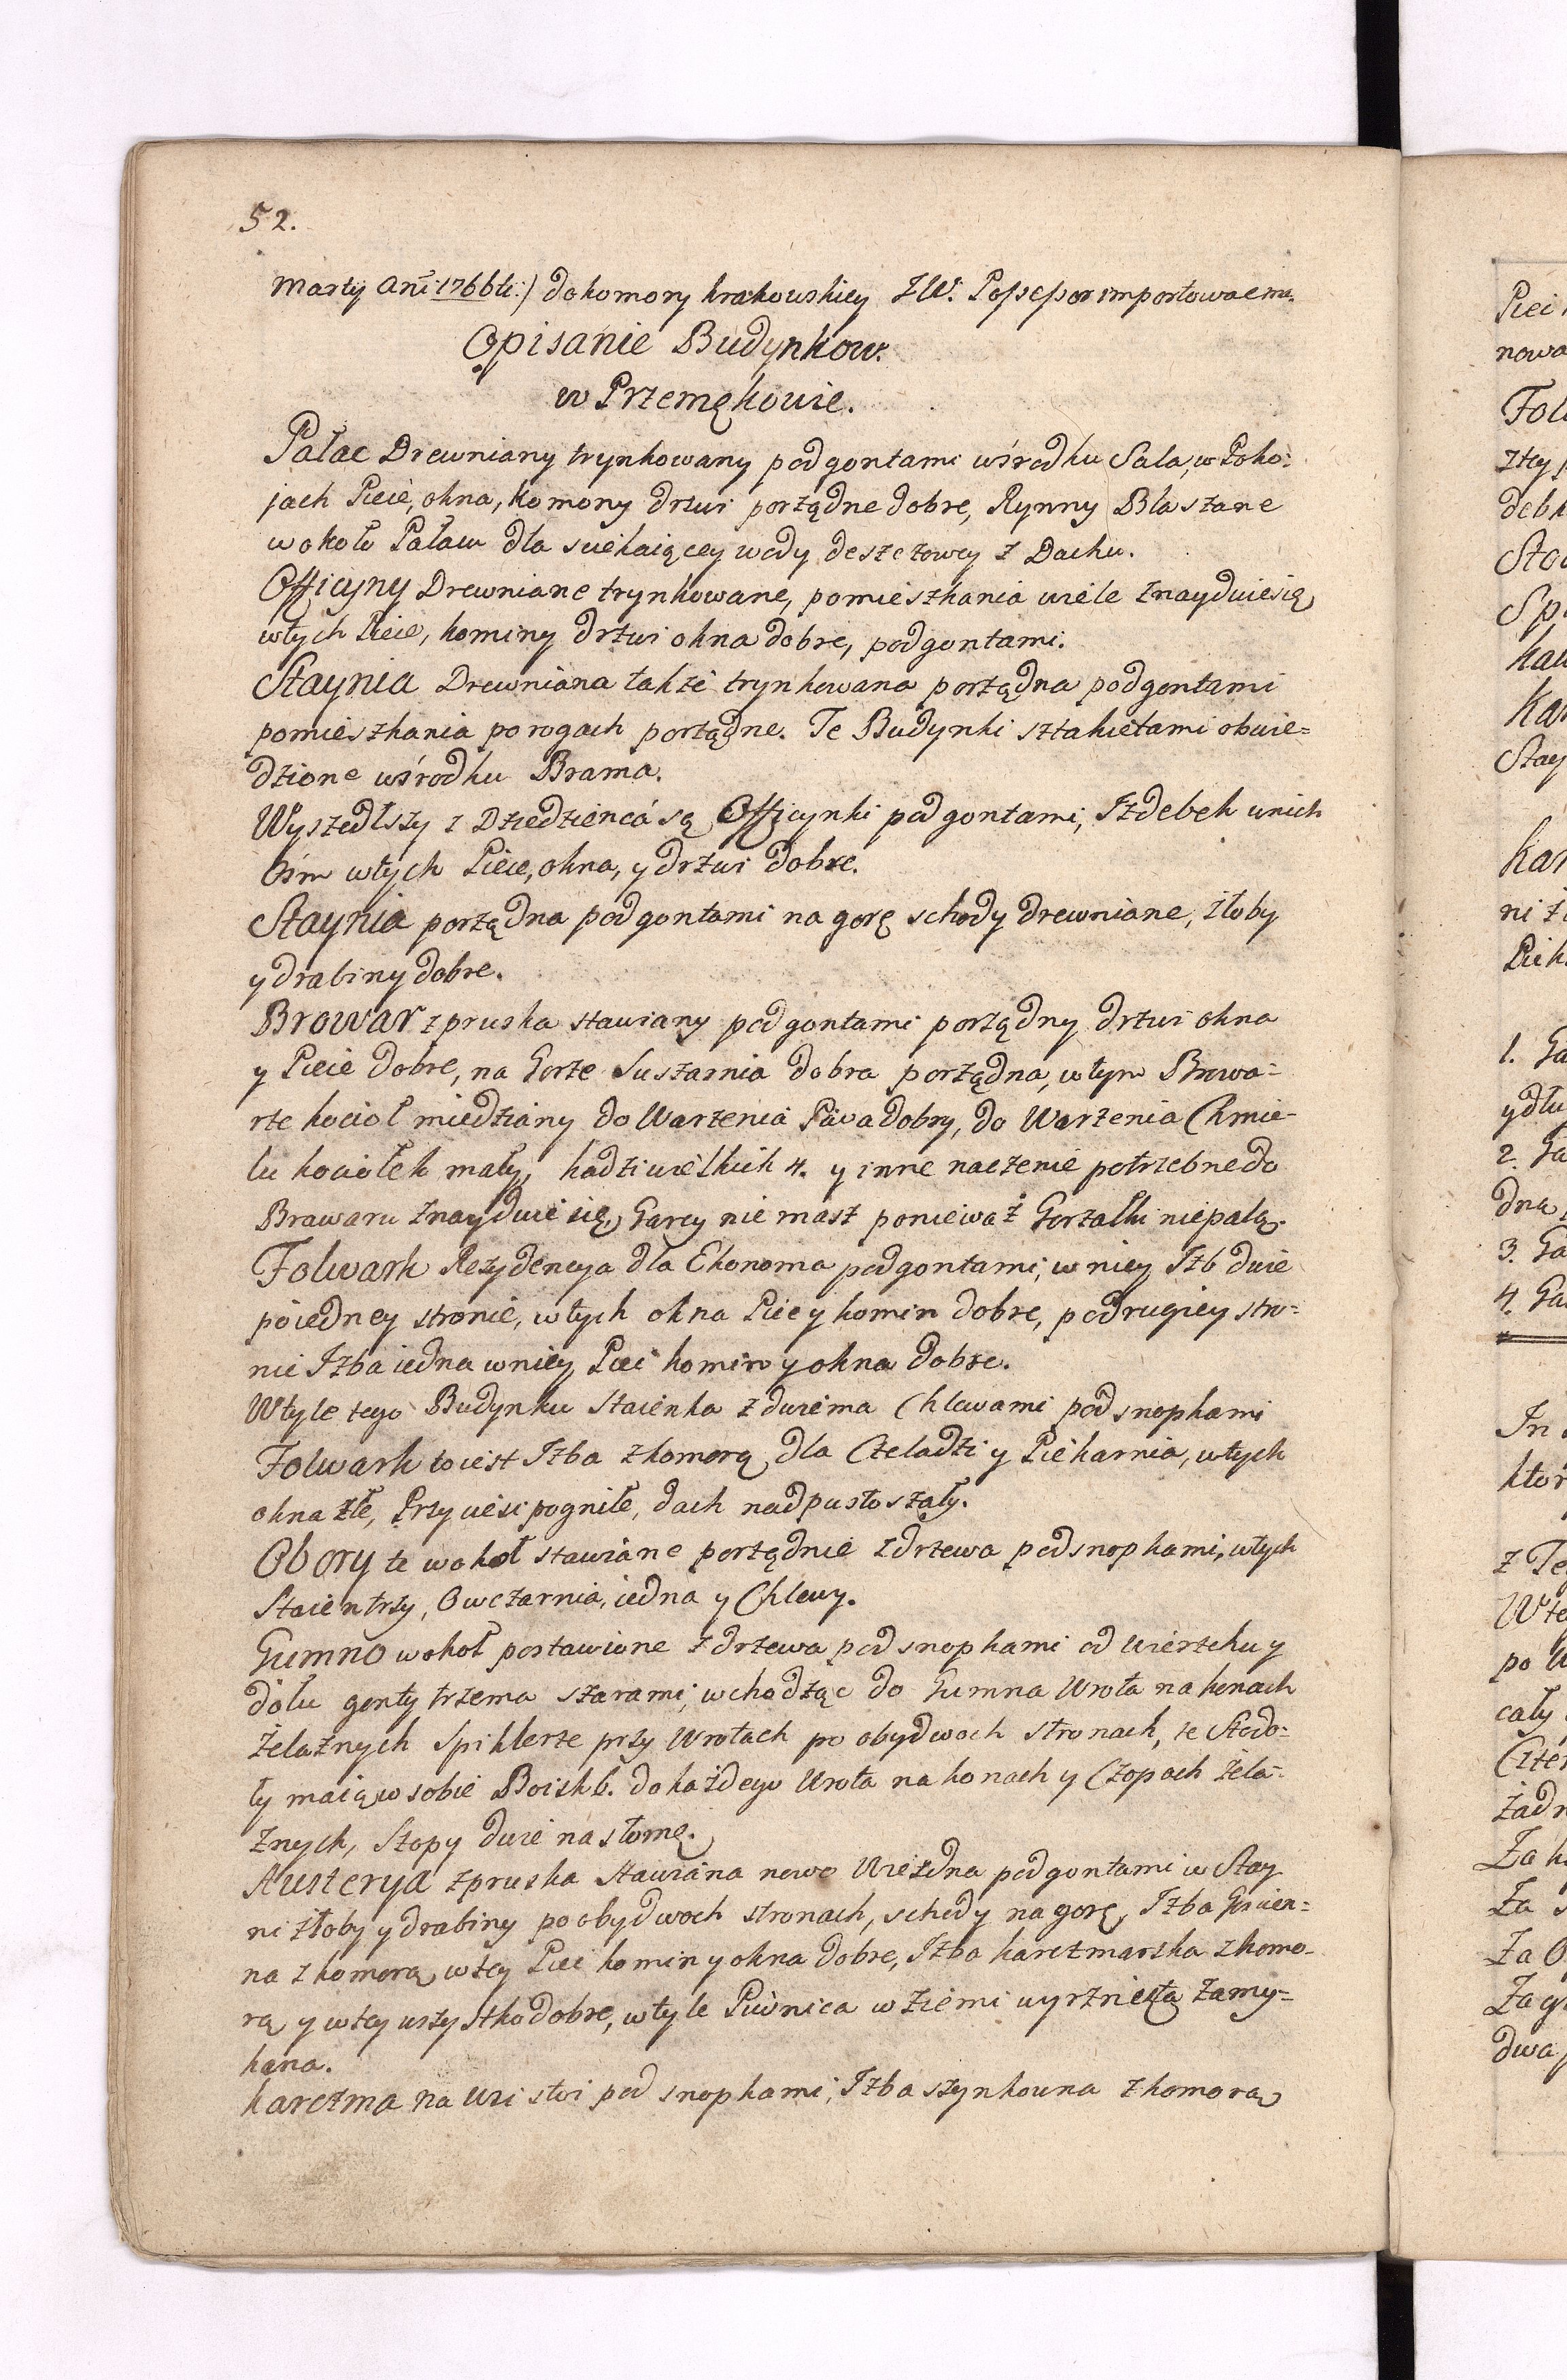 52.
Marty Anni 1766ti:) do komory krakowskiey J W: Possessor importowac ma.
Opisanie Budynkow.
w Przemękowie.
Pałac Drewniany trynkowany pod gontami wśrodku Sala, w Poko:
jach Piece, okna, Kominy drzwi porządne dobre, Rynny Blaszane
wokoło Pałacu dla sciekaiącey wody deszczowey z Dachu.
Officyny Drewniane trynkowane, pomieszkania wiele znayduie się
w tych Piece, kominy drzwi okna dobre, pod gontami.
Staynia Drewniana także trynkowana porządna pod gontami
pomieszkania po rogach porządne. Te Budynki sztakietami obwie=
dzione wśrodku Brama.
Wyszedłszy z Dziedzienca są Officynki pod gontami, Izdebek w nich
Ośm w tych Piece, okna, y drzwi dobre.
Staynia porządna pod gontami na gorę schody drewniane, żłoby
y drabiny dobre.
Browar z pruska stawiany pod gontami porządny drzwi okna
y Piece dobre, na Gorze Suszarnia dobra porządna, w tym Browa=
rze kocioł miedziany do Warzenia Piwa dobry, do Warzenia Chmie-
lu kociołek mały, kadzi wielkich 4. y inne naczenie potrzebne do
Browaru znayduie się, Garcy nie masz ponieważ Gorzałki nie palą.
Folwark Rezydencya dla Ekonoma pod gontami, w niey Izb dwie
po iedney stronie, w tych okna Piec y komin dobre, po drugiey stro=
nie Izba iedna w niey Piec komin y okna dobre.
W tyle tego Budynku Staienka z dwiema Chlewami pod snopkami
Folwark to iest Izba z komorą dla Czeladzi y Piekarnia, w tych
okna złe, Przyciesi pogniłe, dach nadpustoszały.
Obory te wokoł stawiane porządnie z drzewa pod snopkami, w tych
Staien trzy, Owczarnia, iedna y Chlewy.
Gumno wokoł postawione z drzewa pod snopkami od wierzchu y
dołu gonty trzema szarami, wchodząc do Gumna Wrota na konach
Żelaznych Spiklerze przy Wrotach po obydwoch stronach, te Stodo=
ły maią w sobie Boisk 6. do każdego Wrota na konach y Czopach żela=
znych, Szopy dwie na słomę.
Austerya z pruska stawiana nowo Wiezdna pod gontami w Stay
ni żłoby y drabiny po obydwoch stronach, schody na gorę, Izba Goscin=
na z komorą w tey Piec komin y okna dobre, Izba karczmarska z komo-
rą y w tey wszystko dobre, w tyle Piwnica w ziemi wyrznięta zamy=
kana.
Karczma na Wsi stoi pod snopkami, Izba szynkowna z komorą